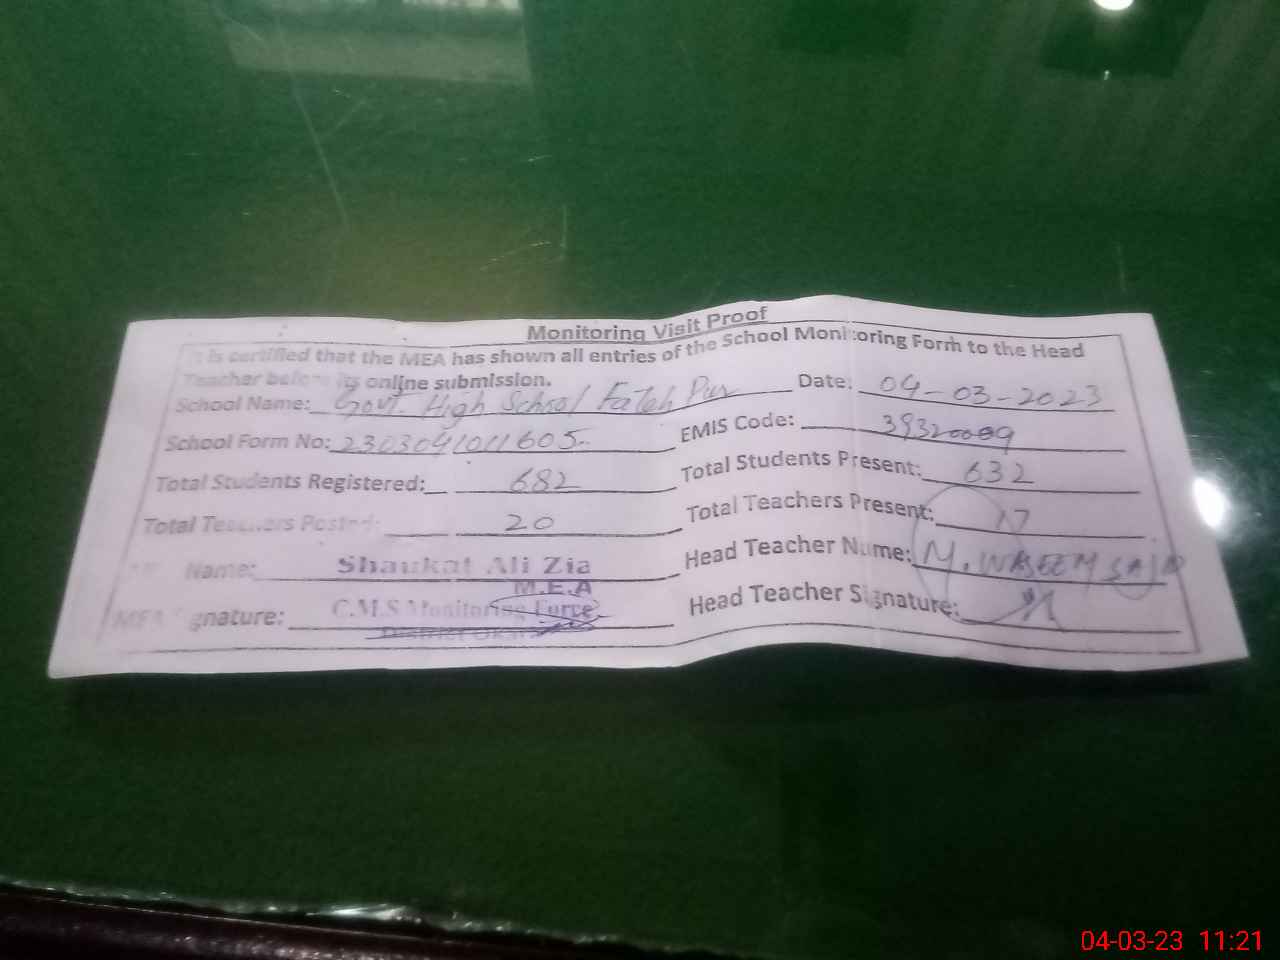 Monitoring Visit Proof
It is certified that the MEA has shown all entries of the School Monitoring Form to the Head
Teacher before its online submission.
School Name: Govt. High School Fateh Pur Date: 04-03-2023
School Form No: 2303041011605 EMIS Code: 39320009
Total Students Registered: 682 Total Students Present: 632
Total Teachers Posted: 20 Total Teachers Present: 17
Name: Shaukat Ali Zia Head Teacher Name: M. WASEEM SAJID
M.E.A
MEA Signature: C.M.S Monitoring Force Head Teacher Signature:
04-03-23 11:21